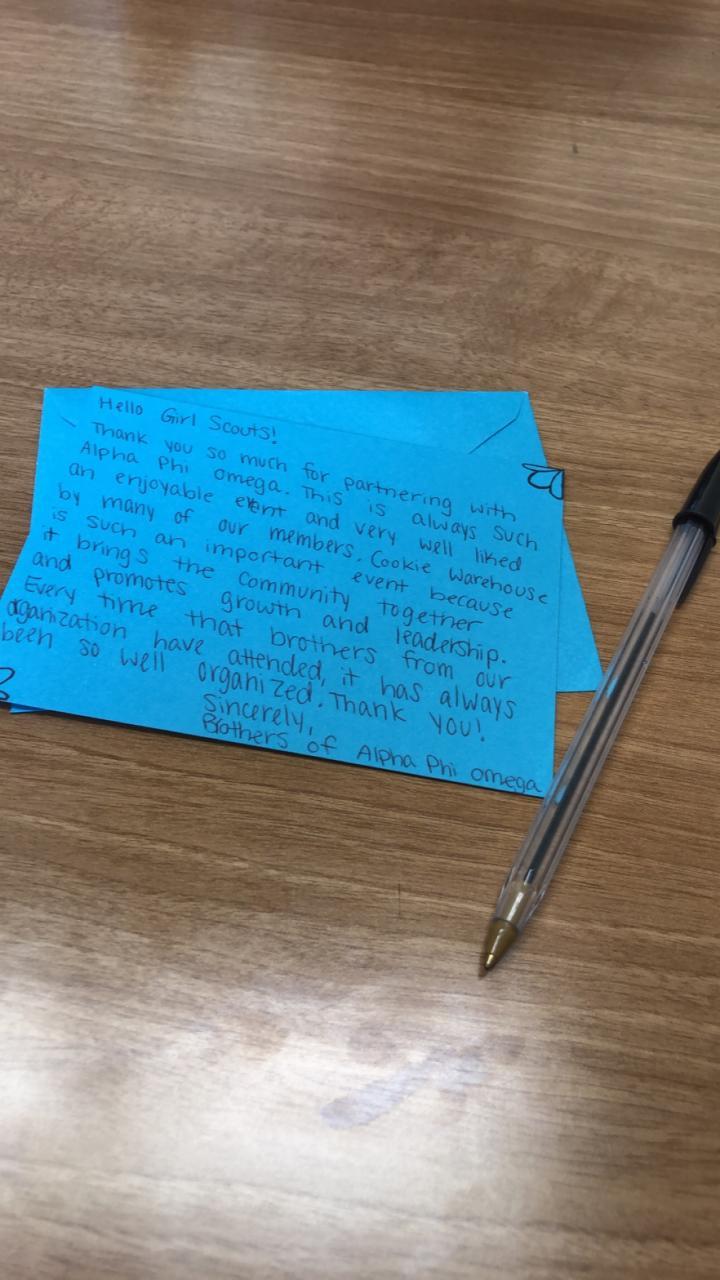 Hello Girl Scouts!
Thank you so much for partnering with
Alpha Phi omega. This is always such
an enjoyable event and very well liked
by many of our members. Cookie Warehouse
is such an important event because
it brings the community together
and promotes growth and leadership.
Every time that brothers from our
organization have attended, it has always
been so well organized. Thank you!
Sincerely,
Brothers of Alpha Phi omega